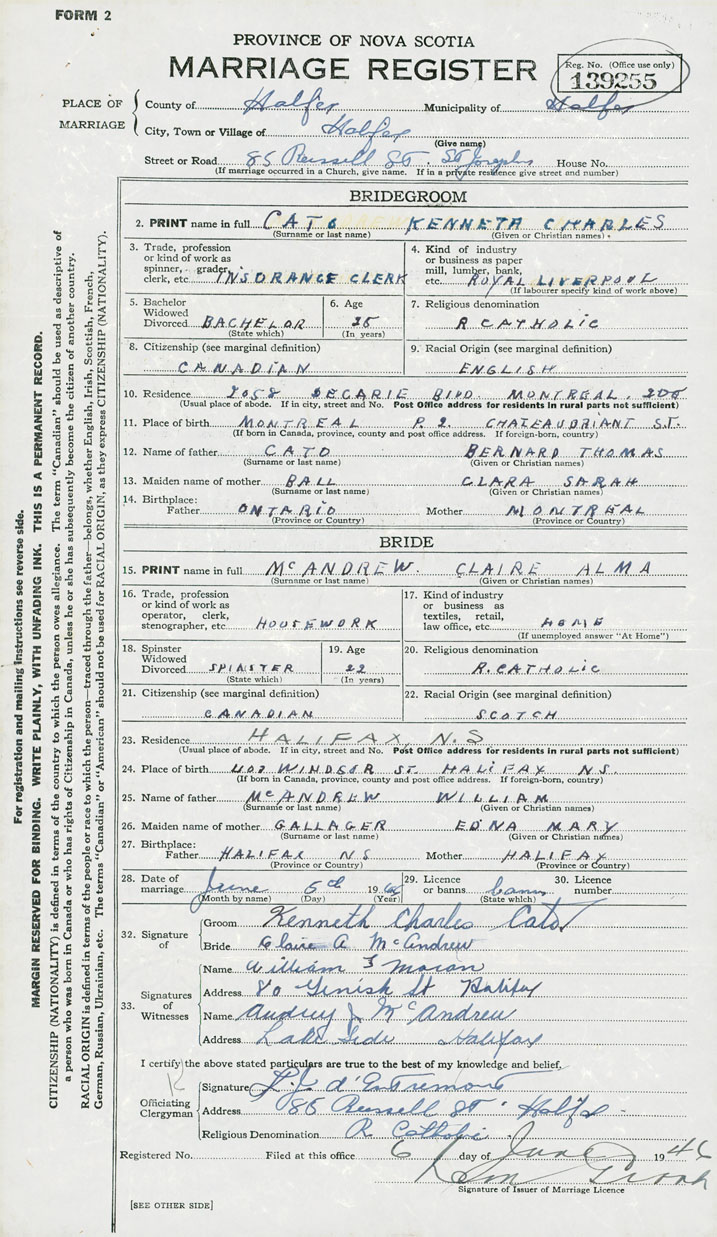 FORM 2
PROVINCE OF NOVA SCOTIA
MARRIAGE REGISTER
Reg. No. (Office use only)
139255
PLACE OF MARRIAGE
County of Halfex Municipality of Halfex
City, Town or Village of Halfex
(Give name)
Street or Road 85 Russell St. St Josephs House No.
(If marriage occurred in a Church, give name. If in a private residence give street and number)
BRIDEGROOM
2. PRINT name in full CATO KENNETH CHARLES
(Surname or last name) (Given or Christian names)
3. Trade, profession or kind of work as spinner, grader, clerk, etc. INSORANCE CLERK
4. Kind of industry or business as paper mill, lumber, bank, etc. ROYAL LIVERPOOL
(If labourer specify kind of work above)
5. Bachelor Widowed Divorced BACHELOR
(State which)
6. Age 25
(In years)
7. Religious denomination R CATHOLIC
8. Citizenship (see marginal definition) CANADIAN
9. Racial Origin (see marginal definition) ENGLISH
10. Residence 2058 DECARIE BLVD. MONTREAL.
(Usual place of abode. If in city, street and No. Post Office address for residents in rural parts not sufficient)
11. Place of birth MONTREAL P. 2. CHATEAUBRIANT ST.
(If born in Canada, province, county and post office address. If foreign-born, country)
12. Name of father CATO BERNARD THOMAS
(Surname or last name) (Given or Christian names)
13. Maiden name of mother BALL CLARA SARAH
(Surname or last name) (Given or Christian names)
14. Birthplace:
Father ONTARIO Mother MONTREAL
(Province or Country) (Province or Country)
BRIDE
15. PRINT name in full McANDREW. CLAIRE ALMA
(Surname or last name) (Given or Christian names)
16. Trade, profession or kind of work as operator, clerk, stenographer, etc. HOUSEWORK
17. Kind of industry or business as textiles, retail, law office, etc. HOME
(If unemployed answer "At Home")
18. Spinster Widowed Divorced SPINSTER
(State which)
19. Age 22
(In years)
20. Religious denomination R.CATHOLIC
21. Citizenship (see marginal definition) CANADIAN
22. Racial Origin (see marginal definition) SCOTCH
23. Residence HALIFAX, N.S
(Usual place of abode. If in city, street and No. Post Office address for residents in rural parts not sufficient)
24. Place of birth WINDSOR ST. HALIFAX NS.
(If born in Canada, province, county and post office address. If foreign-born, country)
25. Name of father McANDREW WILLIAM
(Surname or last name) (Given or Christian names)
26. Maiden name of mother GALLAGER EDNA MARY
(Surname or last name) (Given or Christian names)
27. Birthplace:
Father HALIFAX NS Mother HALIFAX
(Province or Country) (Province or Country)
28. Date of marriage June 5th 1946
(Month by name) (Day) (Year)
29. Licence or banns banns
(State which)
30. Licence number
32. Signature of
Groom Kenneth Charles Cato
Bride Claire A McAndrew
33. Signatures of Witnesses
Name William J Moran
Address 80 St Halifax
Name Audrey J McAndrew
Address Lake Side Halifax
I certify the above stated particulars are true to the best of my knowledge and belief.
Officiating Clergyman
Signature L.J. d'Entremont
Address 85 Russell St. Halfx
Religious Denomination R Catholic
Registered No. Filed at this office 6 day of June 1946
Signature of Issuer of Marriage Licence
[SEE OTHER SIDE]
For registration and mailing instructions see reverse side.
MARGIN RESERVED FOR BINDING. WRITE PLAINLY, WITH UNFADING INK. THIS IS A PERMANENT RECORD.
CITIZENSHIP (NATIONALITY) is defined in terms of the country to which the person owes allegiance. The term "Canadian" should be used as descriptive of
a person who was born in Canada or who has rights of Citizenship in Canada, unless he or she has subsequently become the citizen of another country.
RACIAL ORIGIN is defined in terms of the people or race to which the person—traced through the father—belongs, whether English, Irish, Scottish, French,
German, Russian, Ukrainian, etc. The terms "Canadian" or "American" should not be used for RACIAL ORIGIN, as they express CITIZENSHIP (NATIONALITY).